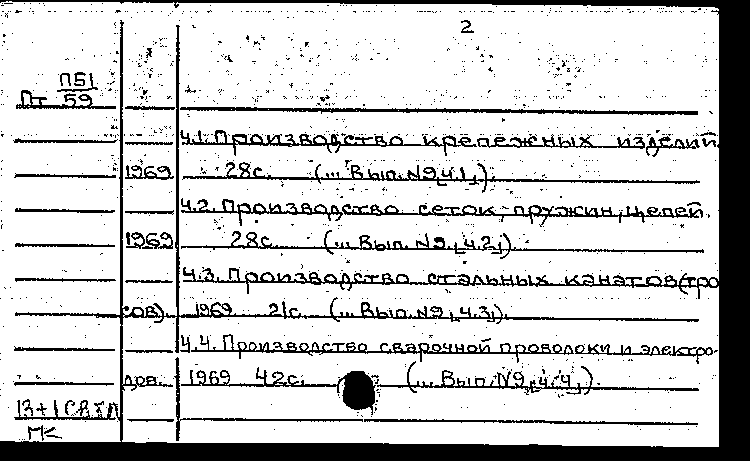 2
П51
Пт 59
ч.1. Производство крепежных изделий.
1969 28с. (... Вып. №9, ч.1,).
ч.2. Производство сеток, пружин, цепей.
1969 28с. (... Вып. №9, ч.2,).
ч.3. Производство стальных канатов (тро
сов). 1969 21с. (... Вып. №9, ч.3,).
ч.4. Производство сварочной проволоки и электро-
дов. 1969 42с. (... Вып. №9, ч.4,).
13+1
МК